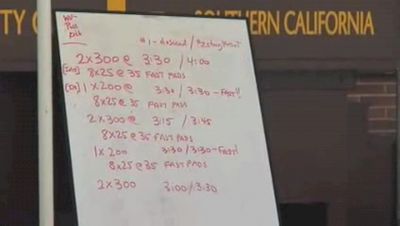 TY O
SOUTHERN CALIFORNIA
#1 - Descend /
2x300 @ 3:30 / 4:00
8x25 @ 35 FAST PADS
1 x 200 @ 3:30 / 3:30 - FAST!!
8x25 @ 35 FAST PADS
2x300 @ 3:15 / 3:45
8x25 @ 35 FAST PADS
1x200 3:30 / 3:30 - FAST!
8x25 @ 35 FAST PADS
2x300 3:00 / 3:30